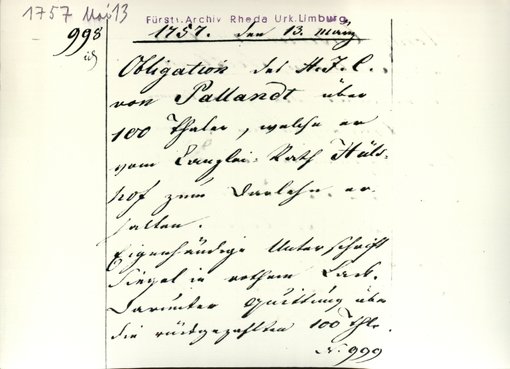 1757 Mai 13
Fürstl. Archiv Rheda Urk. Limburg
998
1757. den 13. May
Obligation des H. F. C.
von Pallandt über
100 Thaler, welche er
vom Canzlei-Rath Hüls-
hof zum Darlehn er-
halten.
Eigenhändige Unterschrift
Siegel in rothem Lack.
Darunter Quittung über
die rückgezahlten 100 Thlr.
999